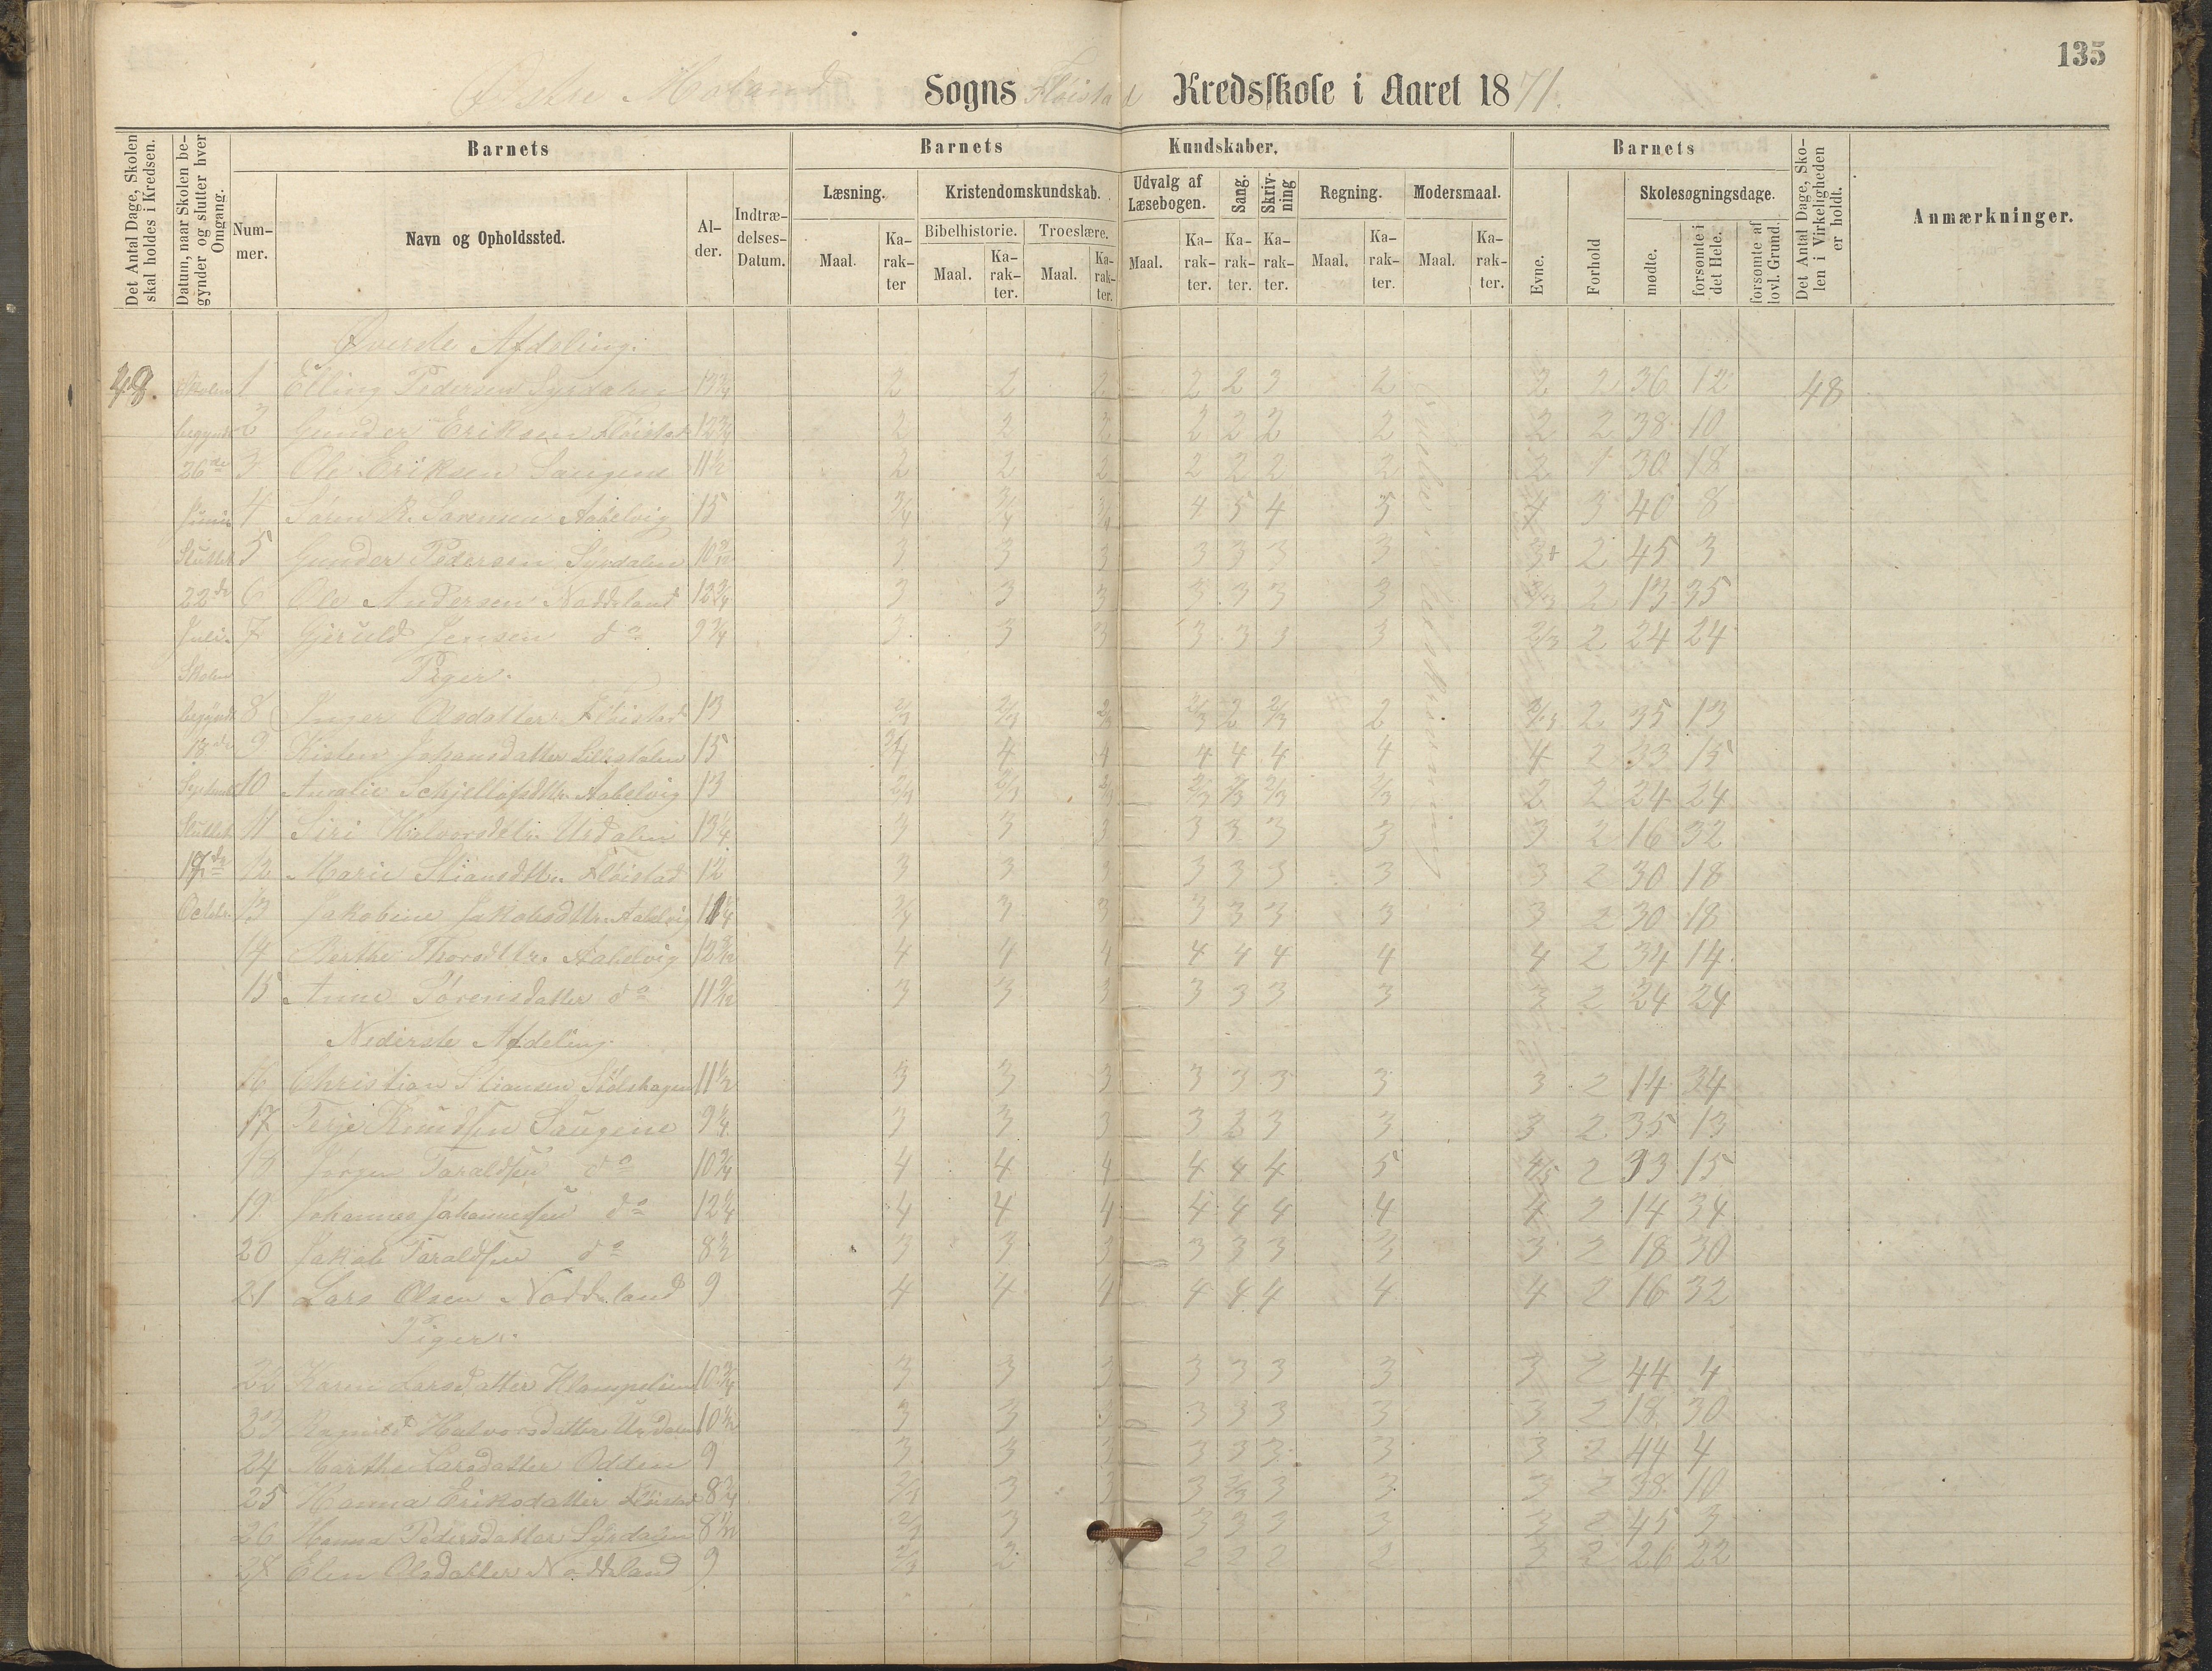 135
Østre Moland Sogns Fløistad Kredsskole i Aaret 1871.
Det Antal Dage, Skolen skal holdes i Kredsen.
Datum, naar Skolen begynder og slutter hver Omgang.
Barnets
Nummer.
Navn og Opholdssted.
Alder.
Indtrædelses-Datum.
Barnets Kundskaber.
Læsning.
Maal.
Karakter
Kristendomskundskab.
Bibelhistorie.
Maal.
Karakter.
Troeslære.
Maal.
Karakter.
Udvalg af Læsebogen.
Maal.
Karakter.
Sang.
Karakter.
Skrivning
Karakter.
Regning.
Maal.
Karakter.
Modersmaal.
Maal.
Karakter.
Barnets
Evne.
Forhold
Skolesøgningsdage.
mødte.
forsømte i det Hele.
forsømte af lovl. Grund.
Det Antal Dage, Skolen i Virkeligheden er holdt.
Anmærkninger.
Øverste Afdeling.
48. Skolen 1 Elling Pedersen Syrdalen 12 3/4 2 2 2 2 2 3 2 2 2 36 12 48
begyndt 2 Gunder Eriksen Fløistad 12 3/4 2 2 2 2 2 2 2 2 2 38 10
26de 3 Ole Eriksen Saugene 11 1/2 2 2 2 2 2 2 2 2 1 30 18
Juni 4 Søren R. Sørensen Aabelvig 15 3/4 3/4 3/4 4 5 4 5 4 3 40 8
Sluttet 5 Gunder Pedersen Syrdalen 3 3 3 3 3 3 3 3 2 45 3
22de 6 Ole Andersen Noddeland 12 3/4 3 3 3 3 3 3 3 2 13 35
Juli 7 Gjeruld Jensen do 9 3/4 3 3 3 3 3 3 3 2/3 2 24 24
Skolen Piger.
begyndt 8 Inger Olsdatter Fløistad 13 2/3 2/3 2/3 2/3 2 2/3 2 2/3 2 35 13
18de 9 Kisten Johansdatter 15 3/4 4 4 4 4 4 4 4 2 33 15
September 10 Amalie Schjellofsdttr. Aabelvig 13 2/3 2/3 2/3 2/3 2/3 2/3 2/3 2 2 24 24
Sluttet 11 Siri Halvorsdttr. Urdalen 13 1/4 3 3 3 3 3 3 3 3 2 16 32
17de 12 Marie Stiansdttr. Fløistad 12 3 3 3 3 3 3 3 3 2 30 18
Octobr. 13 Jakobine Jakobsdttr. Aabelvig 11 1/4 3/4 3 3 3 3 3 3 3 2 30 18
14 Berthe Thorsdttr. Aabelvig 4 4 4 4 4 4 4 4 2 34 14
15 Anne Sørensdatter do 3 3 3 3 3 3 3 3 2 24 24
Nederste Afdeling.
16 Christian Stiansen Stølshagen 11 1/2 3 3 3 3 3 3 3 3 2 14 34
17 Terje Knudsen Saugene 9 1/4 3 3 3 3 2 3 3 3 2 35 13
18 Jørgen Taraldsen do 10 3/4 4 4 4 4 4 4 5 4/5 2 33 15
19 Johannes Johannesen do 12 1/4 4 4 4 4 4 4 4 4 2 14 34
20 Jakob Taraldsen do 8 1/2 3 3 3 3 3 3 3 3 2 18 30
21 Lars Olsen Noddeland 9 4 4 4 4 4 4 4 4 2 16 32
Piger.
22 Karen Larsdatter 10 3/4 3 3 3 3 3 3 3 3 2 44 4
23 Ragnild Halvorsdatter Urdalen 10 1/2 3 3 3 3 3 3 3 3 2 18 30
24 Marthe Larsdatter Odden 9 3 3 3 3 3 3 3 3 2 44 4
25 Hanna Eriksdatter Fløistad 8 3/4 2/3 3 3 3 2/3 3 3 3 2 38 10
26 Hanna Pedersdatter Syrdalen 8 1/2 2/3 3 3 3 3 3 3 2 45 3
27 Elen Olsdatter Noddeland 9 2/3 2 2 2 2 2 2 2 26 22